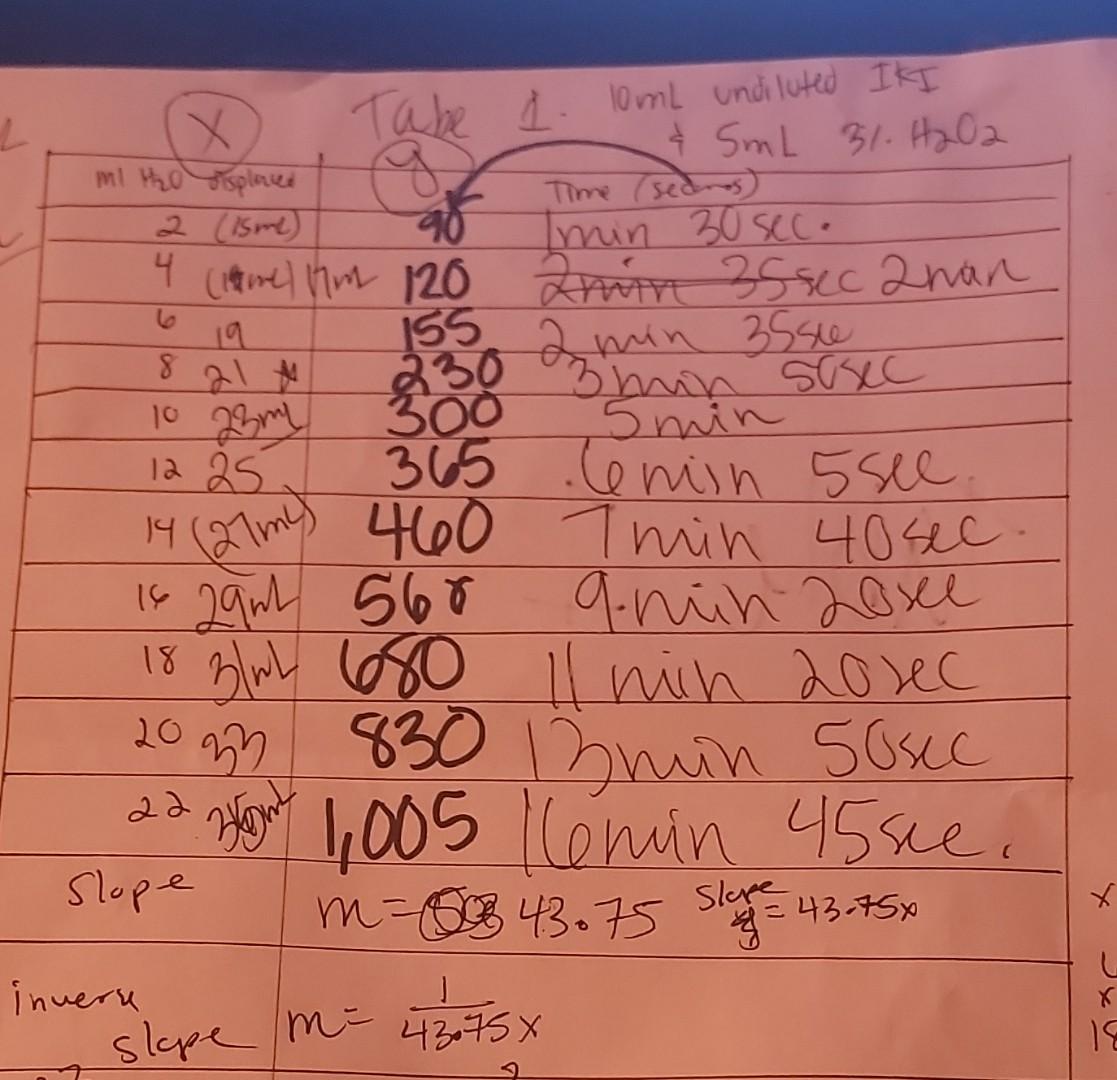 X Table 1. 10mL undiluted IKI
& 5mL 3%. H2O2
ml H2O displaced y Time (seconds)
2 (15ml) 90 1min 30 sec.
4 17ml 120 2min 35sec 2min
6 19 155 2 min 35sec
8 21 230 3 min 50sec
10 23mL 300 5 min
12 25 365 6 min 5 sec.
14 (27mL) 460 7 min 40 sec.
16 29mL 560 9.min 20sec
18 31mL 680 11 min 20 sec
20 33 830 13 min 50sec
22 1,005 16 min 45 sec.
Slope m= 43.75 Slope y = 43.75x
inverse slope m= 1/43.75x